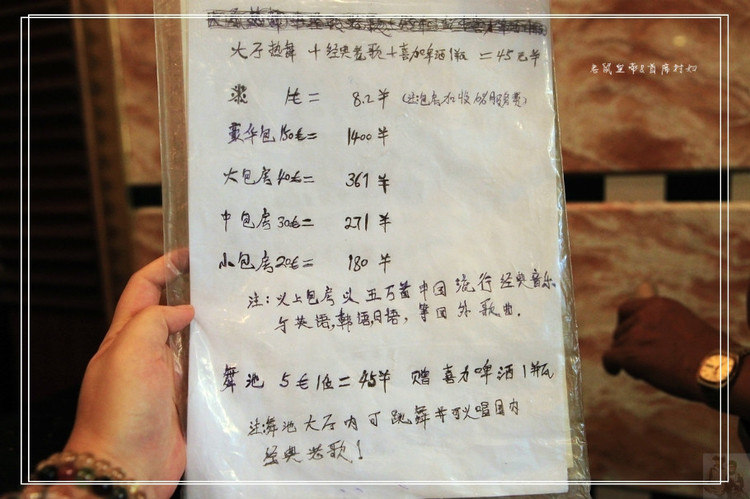 大厅热舞 + 经典老歌 + 喜力啤酒1瓶 = 45元羊
老鼠皇帝&首席村妇
1毛 = 8.2羊
豪华包 150毛= 1400羊
大包房 40毛= 361羊
中包房 30毛= 271羊
小包房 20毛= 180羊
注: 以上包房以五万首中国流行经典音乐
与英语,韩语,日语, 等国外歌曲.
舞池 5毛1位=45羊 赠喜力啤酒1瓶
注:舞池大厅内可跳舞并可以唱国内
经典老歌!